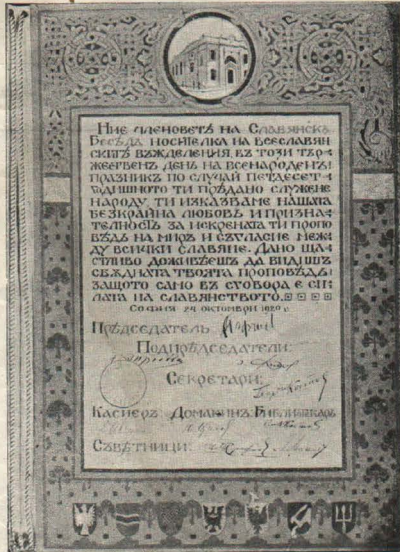 Ние членоветѣ на Славянска
Бесѣда носителка на всеславян
скитѣ въжделения, въ този тър
жественъ день на всенароденъ
праздникъ по случай петдесет
годишното ти прѣдано служене
народу ти изказваме нашата
безкрайна любовь и призна
телность за искрената ти пропо
вѣдь на миръ и съгласие меж
ду всички славяне. Дано ща
стливо доживѣешъ да видишъ
сбѫдната твоята проповѣдь
защото само въ сговора е си
лата на славянството.
София 24 октомври 1920 г.
Прѣдседатель
Подпрѣдседатели:
Секретари:
Касиеръ Домакинъ Библиотекарь
Съвѣтници: